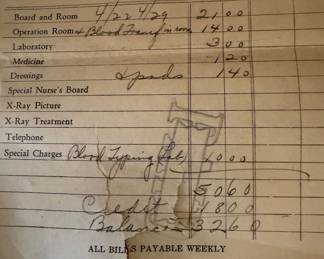 Board and Room 4/22 4/29 21 00
Operation Room & Blood Transf in room 14 00
Laboratory 3 00
Medicine 1 20
Dressings & pads 1 40
Special Nurse's Board
X-Ray Picture
X-Ray Treatment
Telephone
Special Charges Blood Typing (Lab) 10 00
50 60
Credit 18 00
Balance 32 60
ALL BILLS PAYABLE WEEKLY